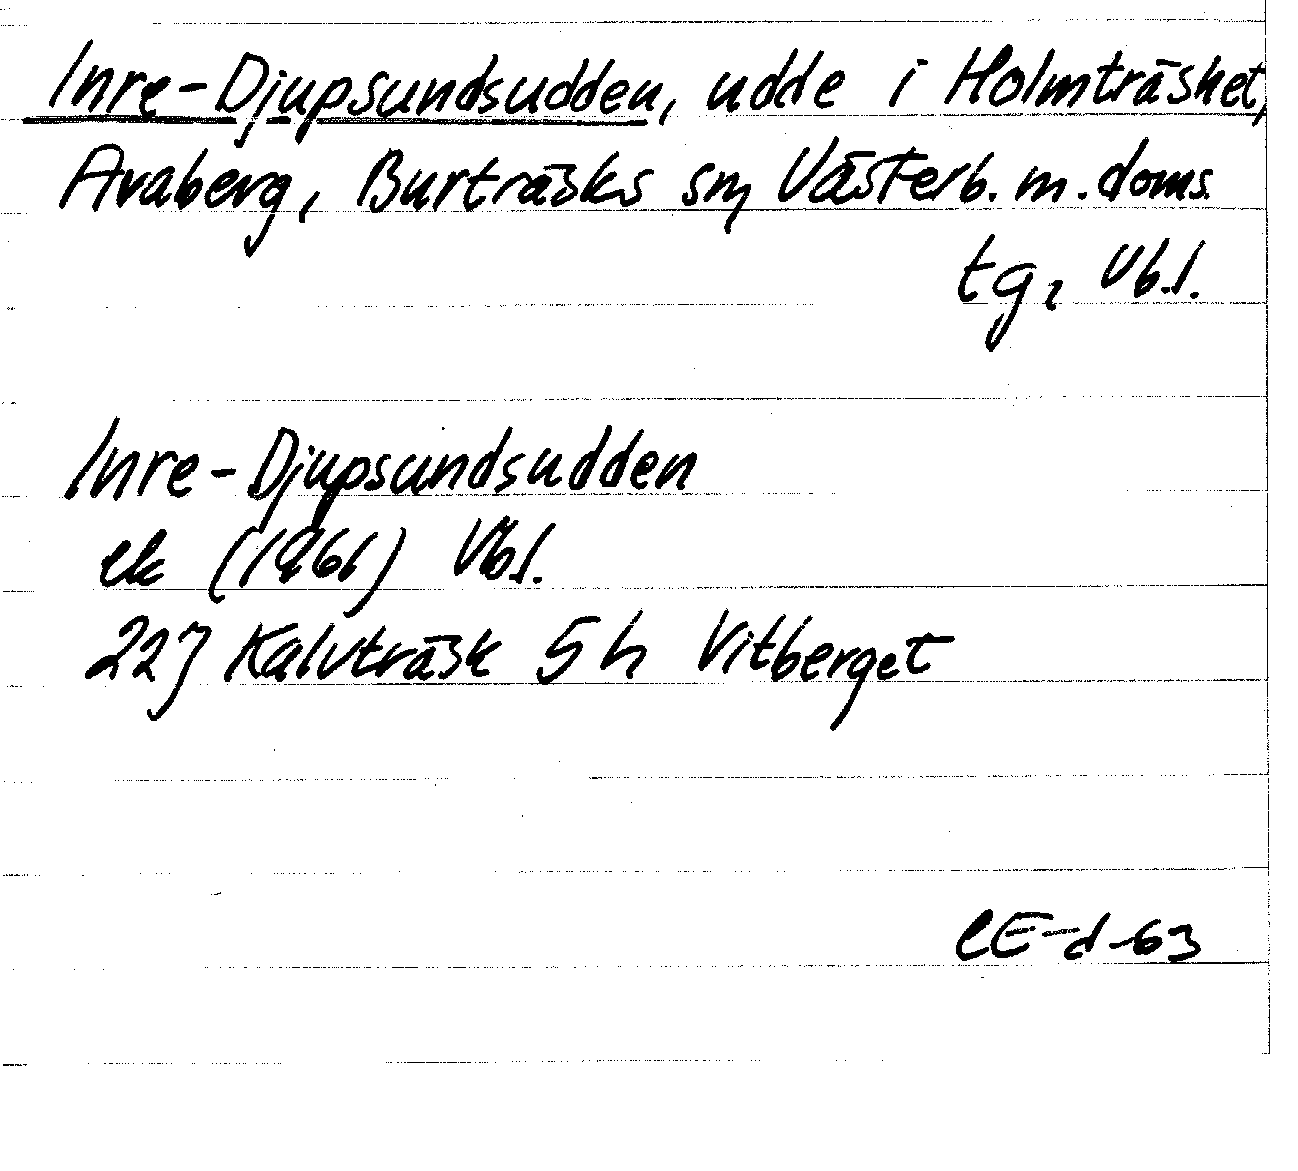 Inre-Djupsundsudden, udde i Holmträsket,
Avaberg, Burträsks sn, Västerb. m. doms.
tg, Vb.l.
Inre-Djupsundsudden
ek (1961) Vb.l.
22J Kalvträsk 5 h Vitberget
CE-d-63